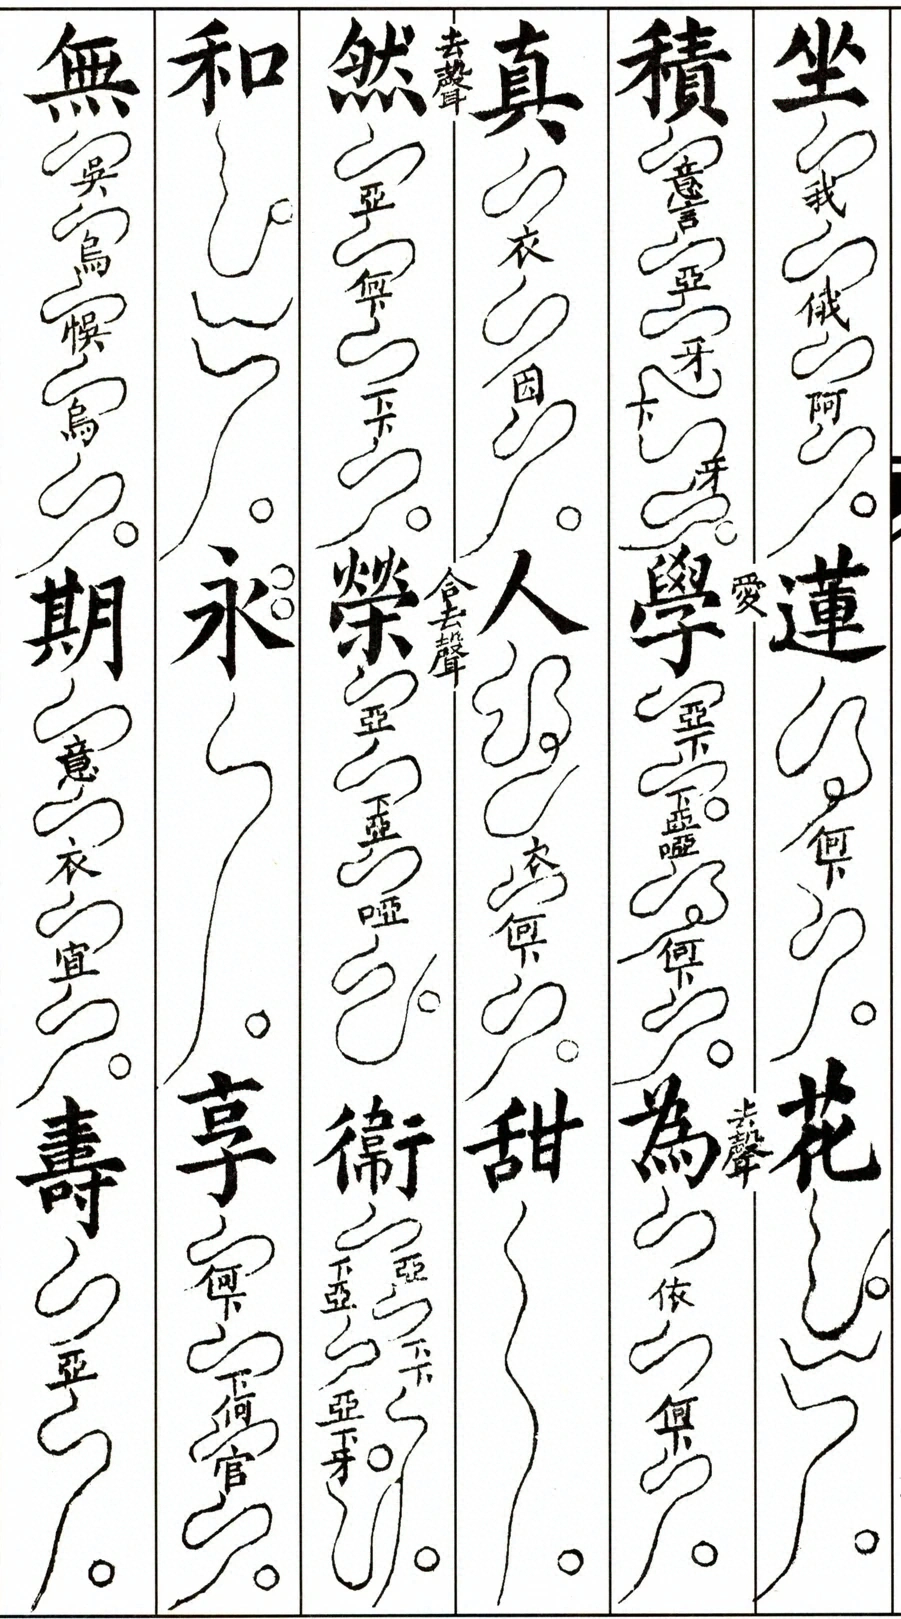 坐我俄阿蓮何下花
積意言亞牙下牙學愛亞下下亞啞何下為去聲依何下
真衣因人衣何下甜
然去聲亞何下下下榮合去聲亞下亞啞衛亞下下下亞亞下牙
和永享何下下何官
無吳烏悞烏期意衣宜壽亞